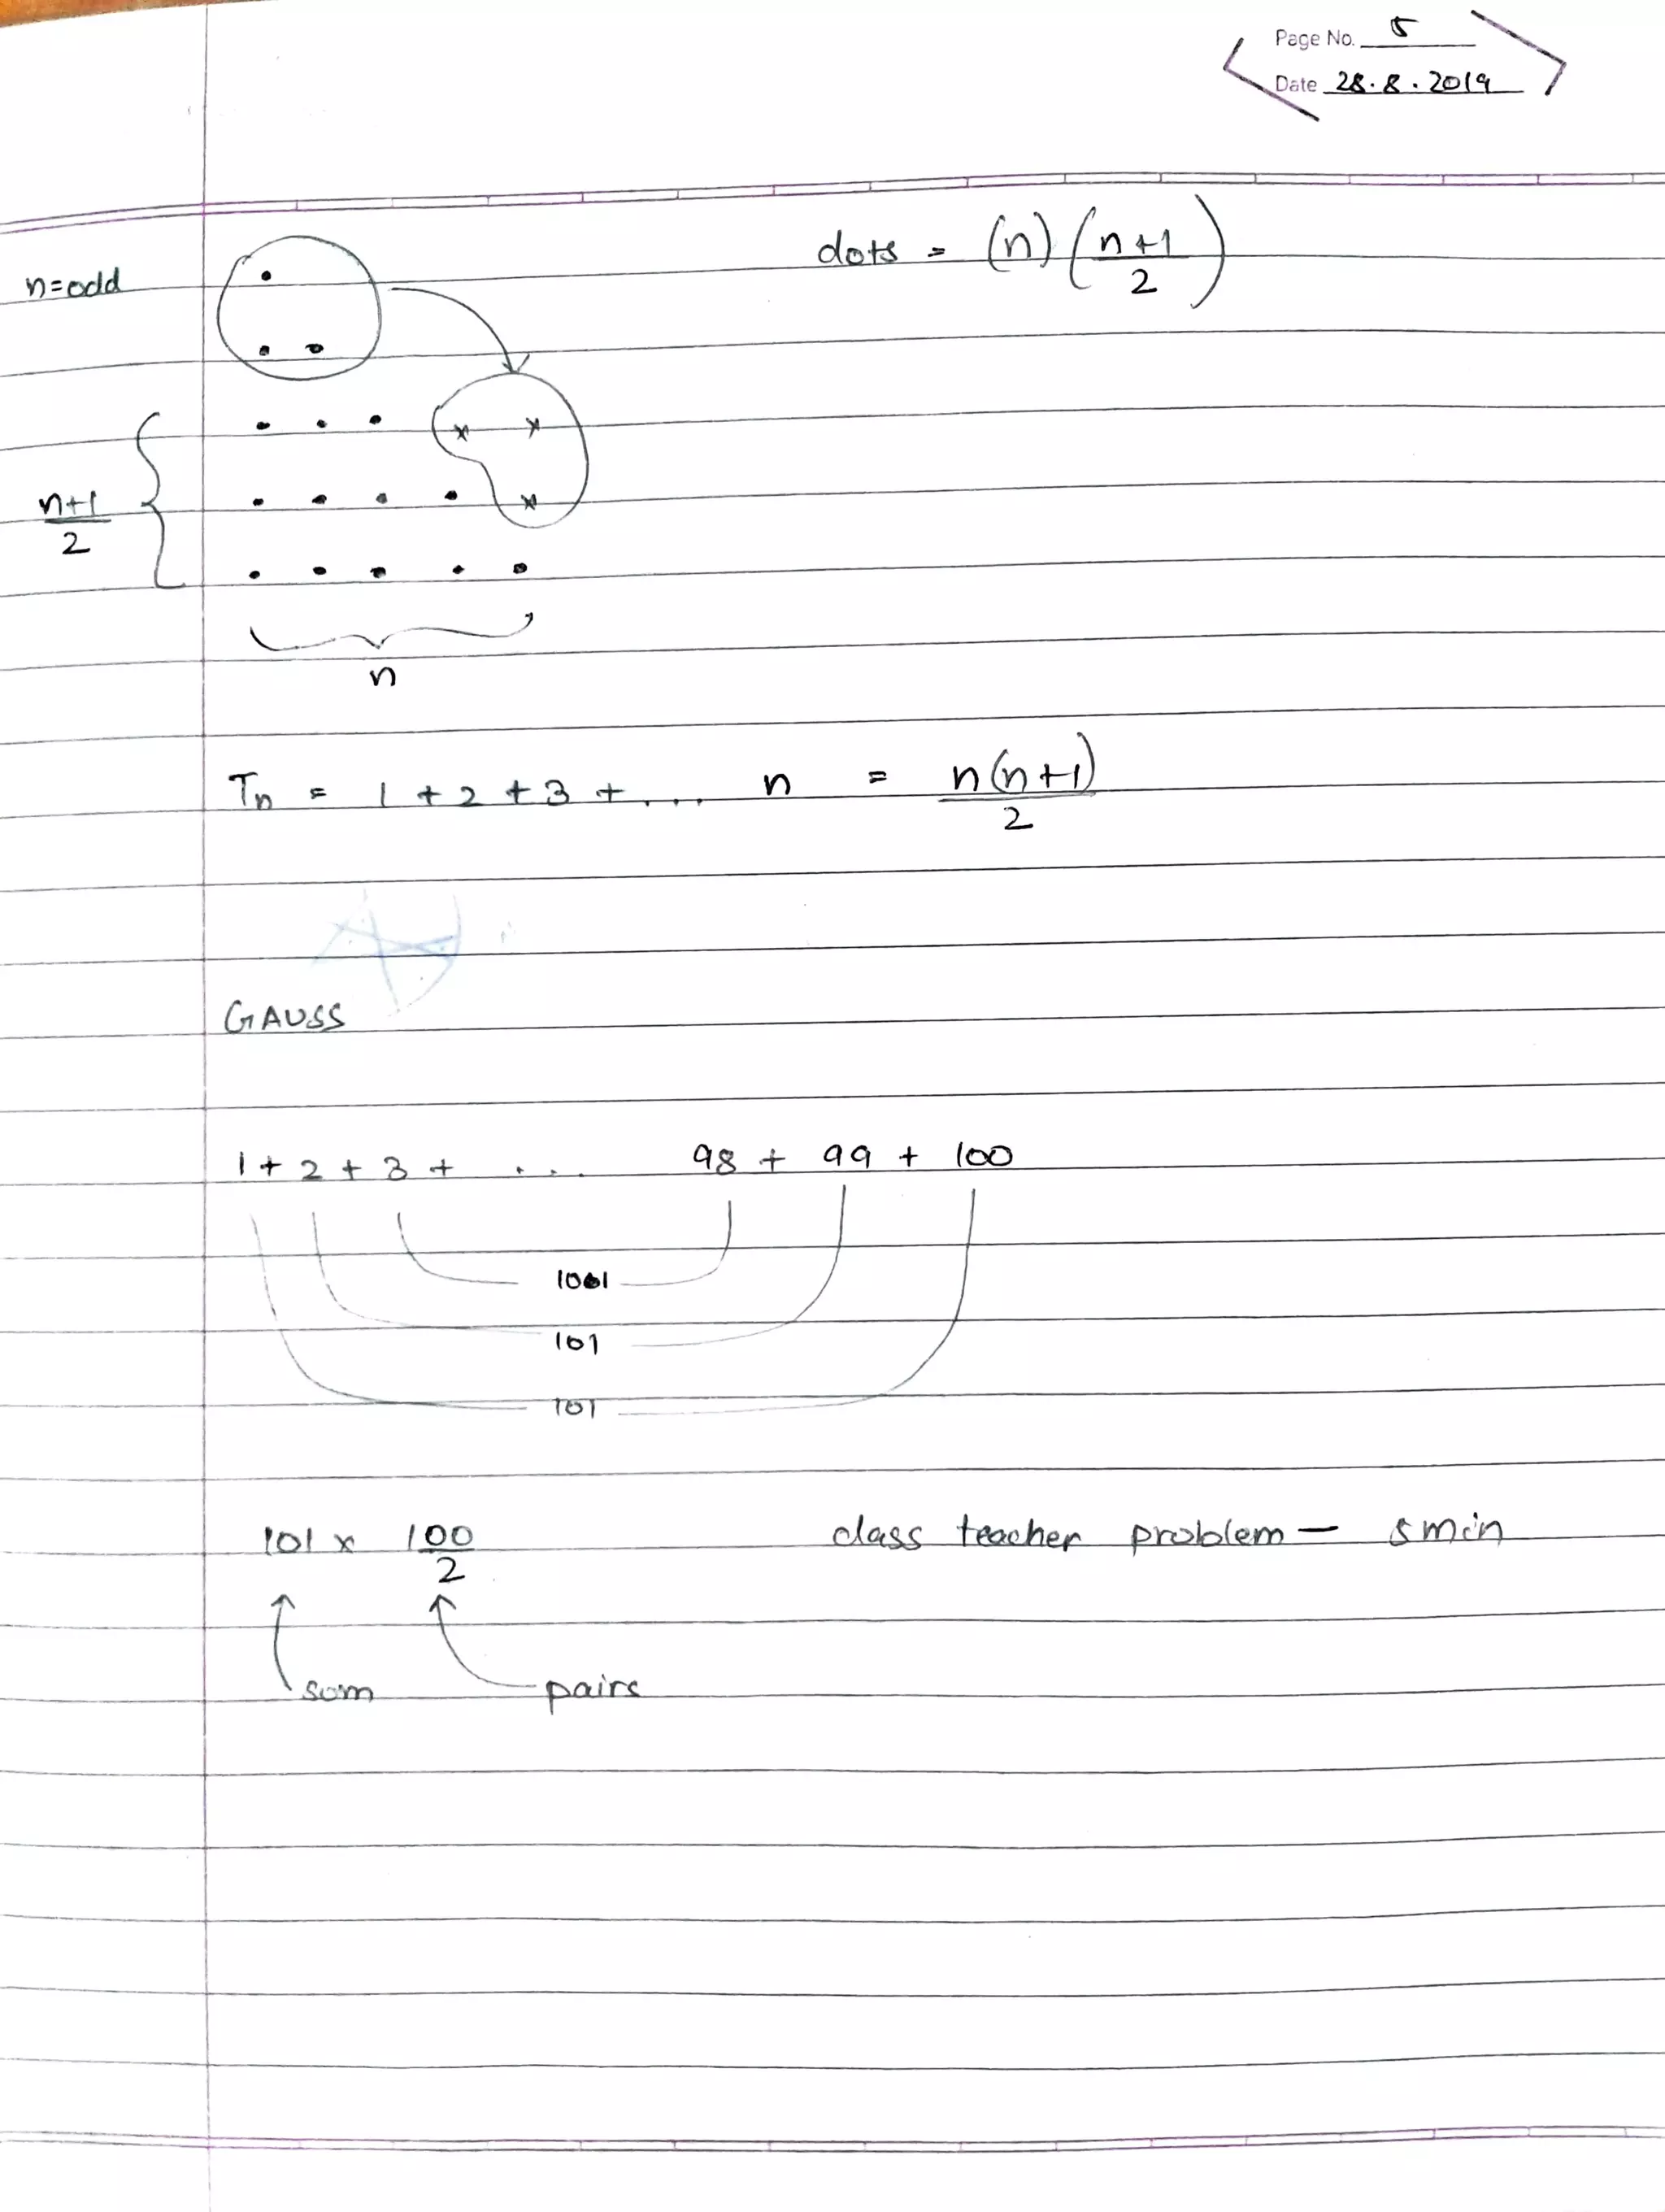 Page No. 5
Date 28.8.2019
n=odd
dots = (n) (n+1/2)
n+1/2
n
Tn = 1 + 2 + 3 + ... n = n(n+1)/2
GAUSS
1 + 2 + 3 + ... 98 + 99 + 100
101
101
101 x 100/2 class teacher problem — 5 min
sum pairs